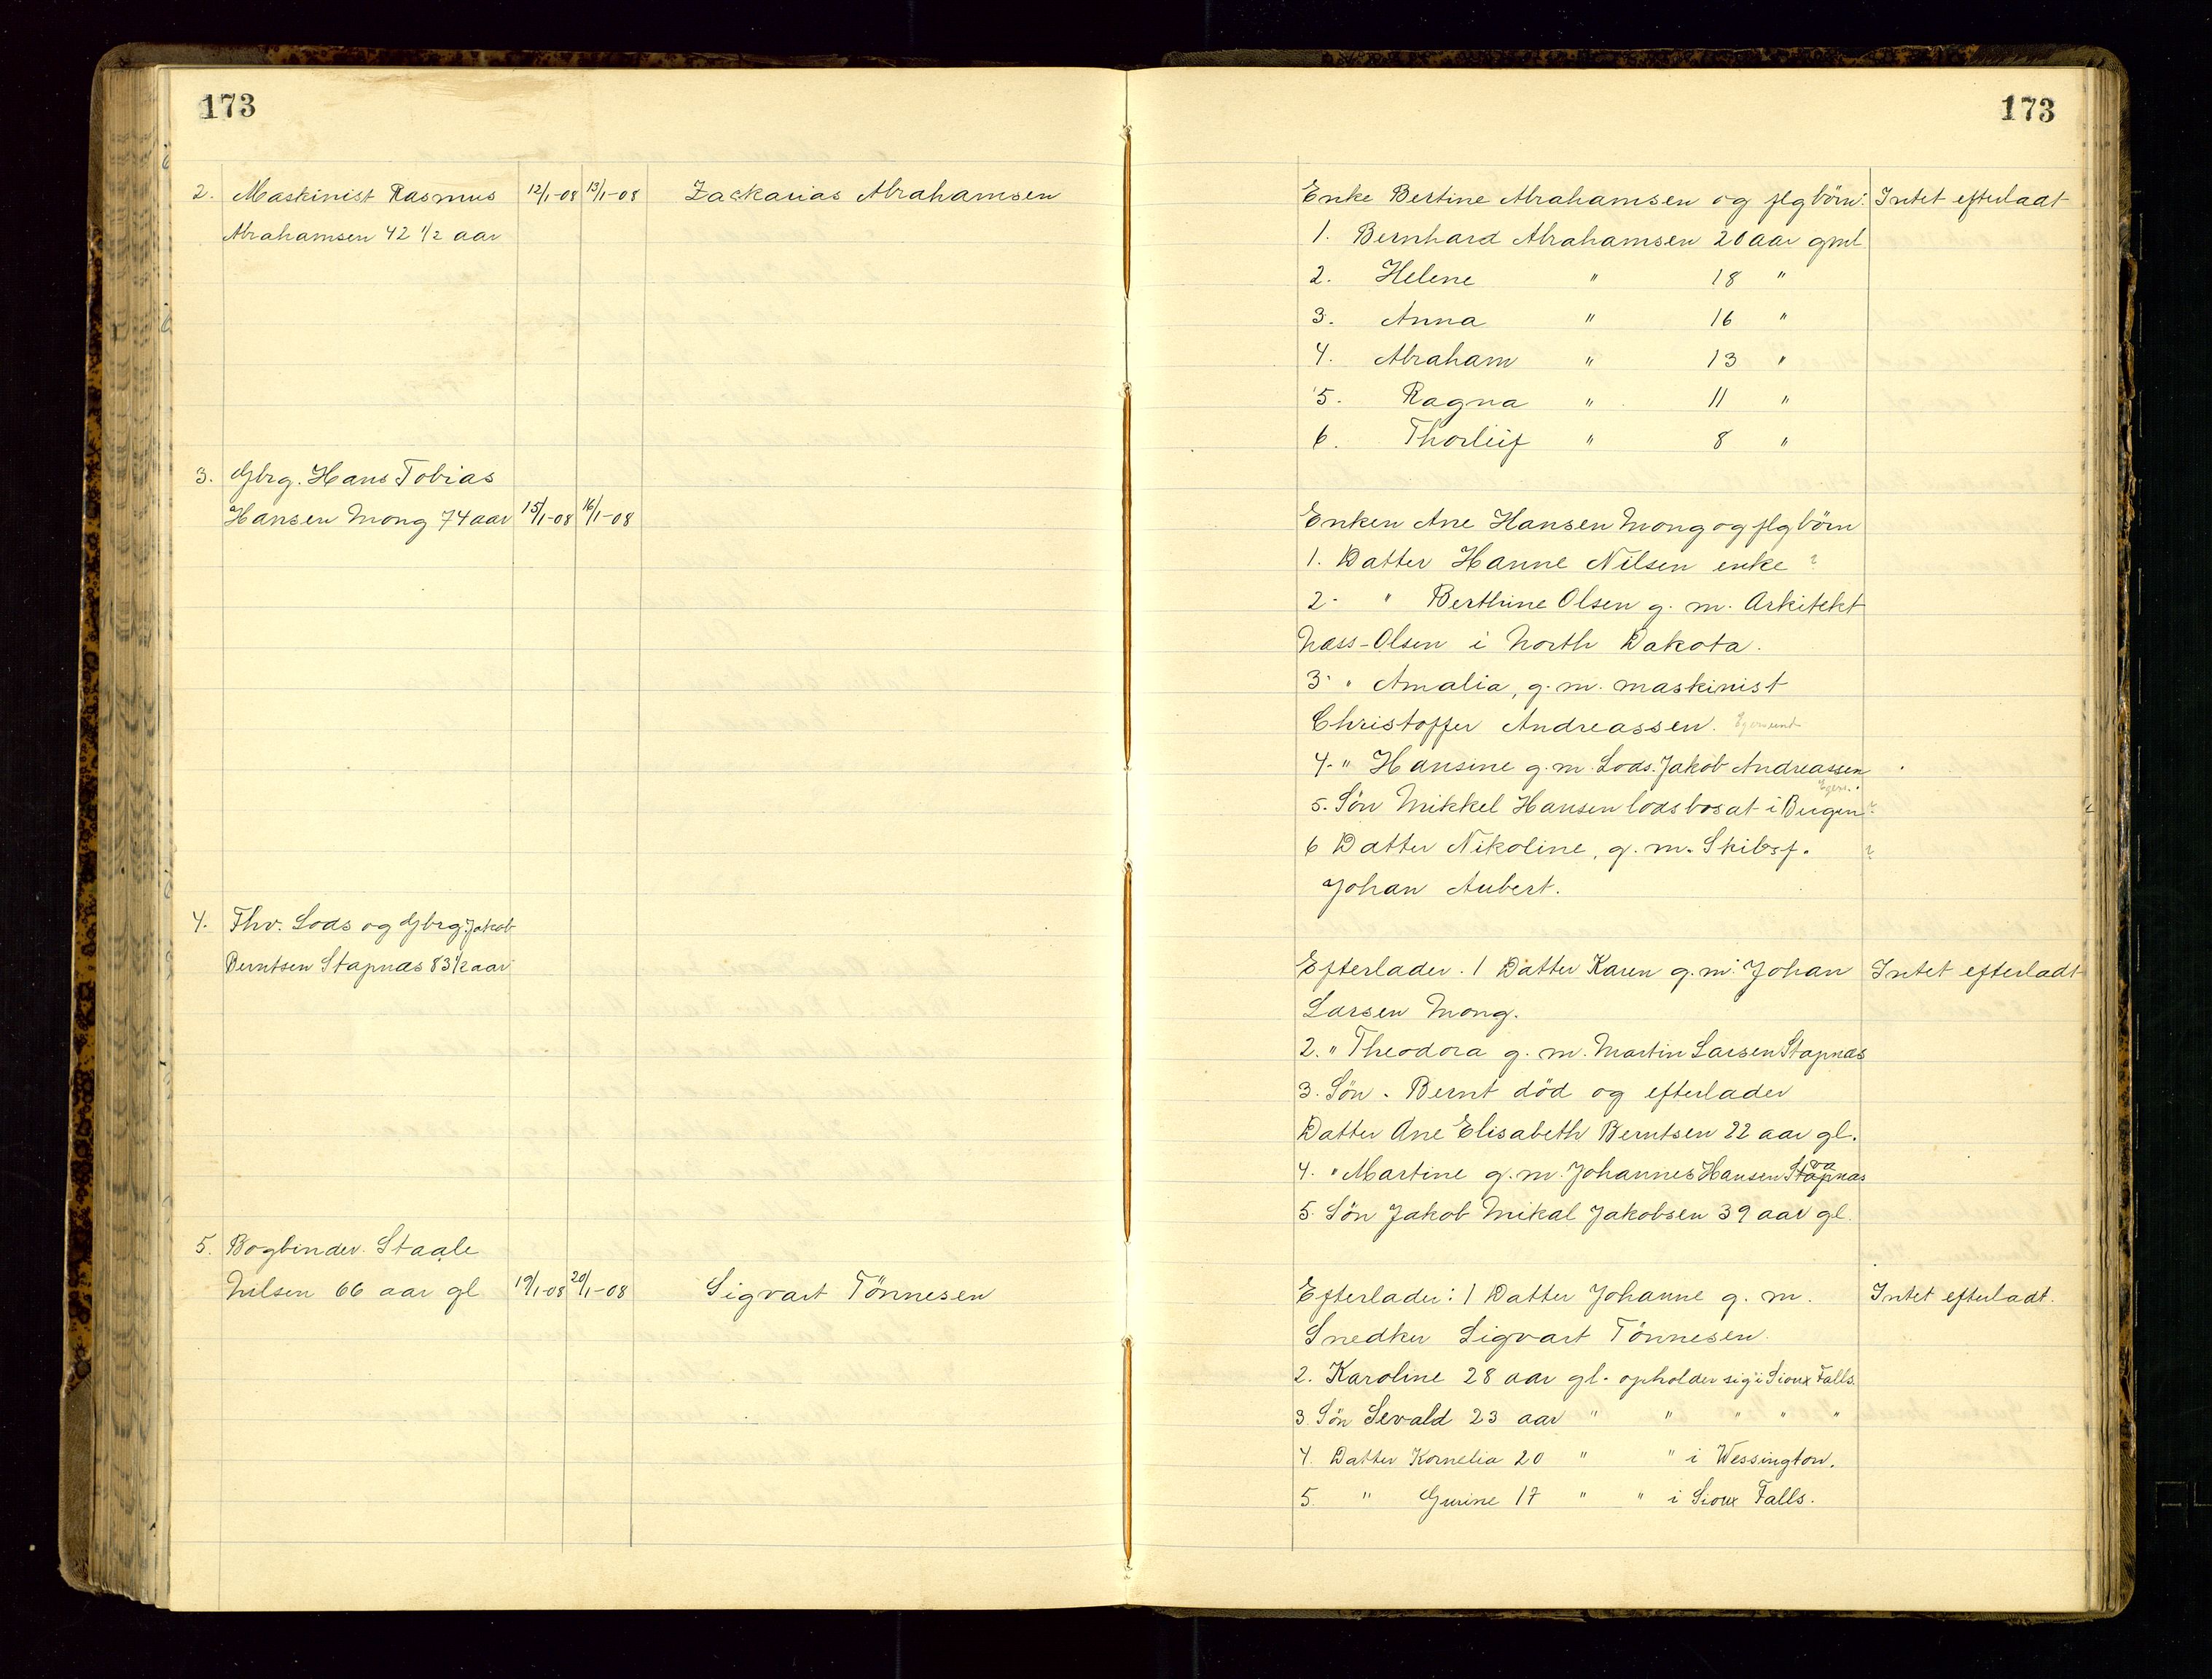 173
173
2. Maskinist Rasmus 12/1-08 13/1-08 Zackarias Abrahamsen
Abrahamsen 42 1/2 aar
3. Gbrg. Hans Tobias
Hansen Mong 74 aar 15/1-08 16/1-08
4. Fhv. Lods og Gbrg. Jakob
Berntsen Stapnæs 83 1/2 aar
5. Bogbinder Staale
Nilsen 66 aar gl 19/1-08 20/1-08 Sigvart Tönnesen
Enke Bertine Abrahamsen og flg börn: Intet efterladt
1. Bernhard Abrahamsen 20 aar gml
2. Helene " 18 "
3. Anna " 16 "
4. Abraham " 13 "
5. Ragna " 11 "
6. Thorleif " 8 "
Enken Ane Hansen Mong og flg börn
1. Datter Hanne Nilsen enke ?
2. " Berthine Olsen g. m. Arkitekt
Næss-Olsen i North Dakota.
3. " Amalia, g. m. maskinist
Christoffer Andreassen. Egersund
4. " Hansine g. m. Lods. Jakob Andreassen
Egers.
5. Sön Mikkel Hansen lods bosat i Bergen ?
6 Datter Nikoline, g. m. Skibsf. ?
Johan Aubert.
Efterlader. 1 Datter Karen g. m. Johan Intet efterladt
Larsen Mong.
2. " Theodora g. m. Martin Larsen Stapnæs
3. Sön. Bernt död og efterlader
Datter Ane Elisabeth Berntsen 22 aar gl.
4. " Martine g. m. Johannes Hansen Stapnæs
5. Sön Jakob Mikal Jakobsen 39 aar gl.
Efterlader: 1 Datter Johanne g. m. Intet efterladt.
Snedker Sigvart Tönnesen.
2. Karoline 28 aar gl. opholder sig i Sioux Falls.
3. Sön Sevald 23 aar " " " " "
4. Datter Kornelia 20 " " i Wessington.
5. " Gurine 17 " " i Sioux Falls.